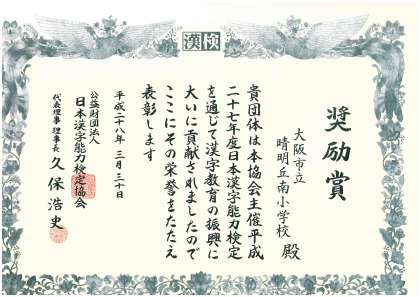 漢検
奨励賞
大阪市立
晴明丘南小学校 殿
貴団体は本協会主催平成
二十七年度日本漢字能力検定
を通じて漢字教育の振興に
大いに貢献されましたので
ここにその栄誉をたたえ
表彰します
平成二十八年 三月 三十日
公益財団法人
日本漢字能力検定協会
代表理事 理事長 久保浩史